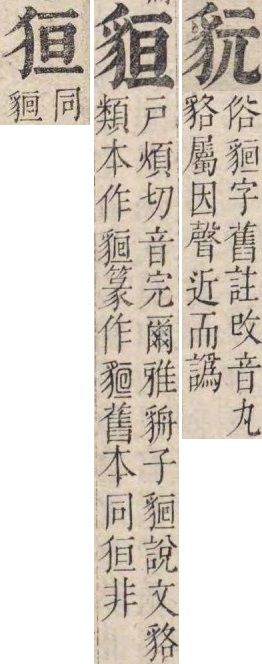 貦
俗貆字舊註改音丸
貉屬因聲近而譌
貆
戶煩切音完爾雅貈子貆說文貉
類本作貆篆作貆舊本同狟非
狟
同
貆